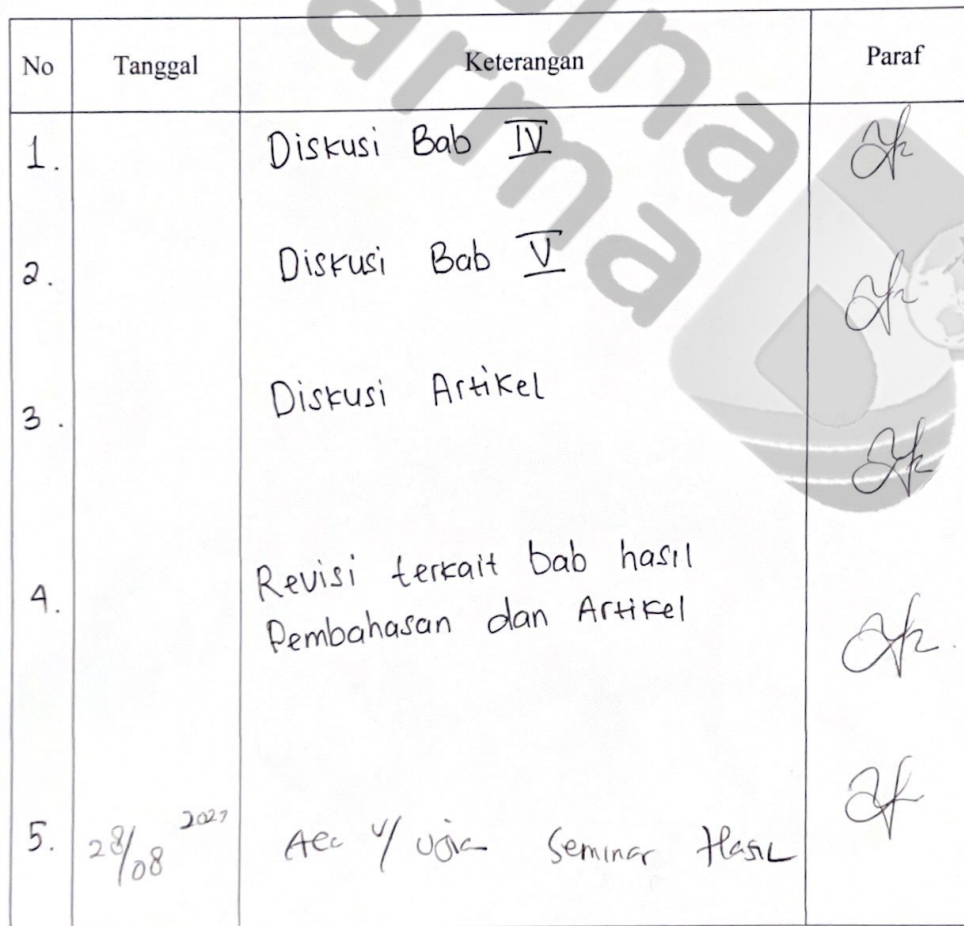 ina
arma
No Tanggal Keterangan Paraf
1. Diskusi Bab IV
2. Diskusi Bab V
3. Diskusi Artikel
4. Revisi terkait bab hasil
Pembahasan dan Artikel
5. 28/08 Acc u/ ujian Seminar Hasil